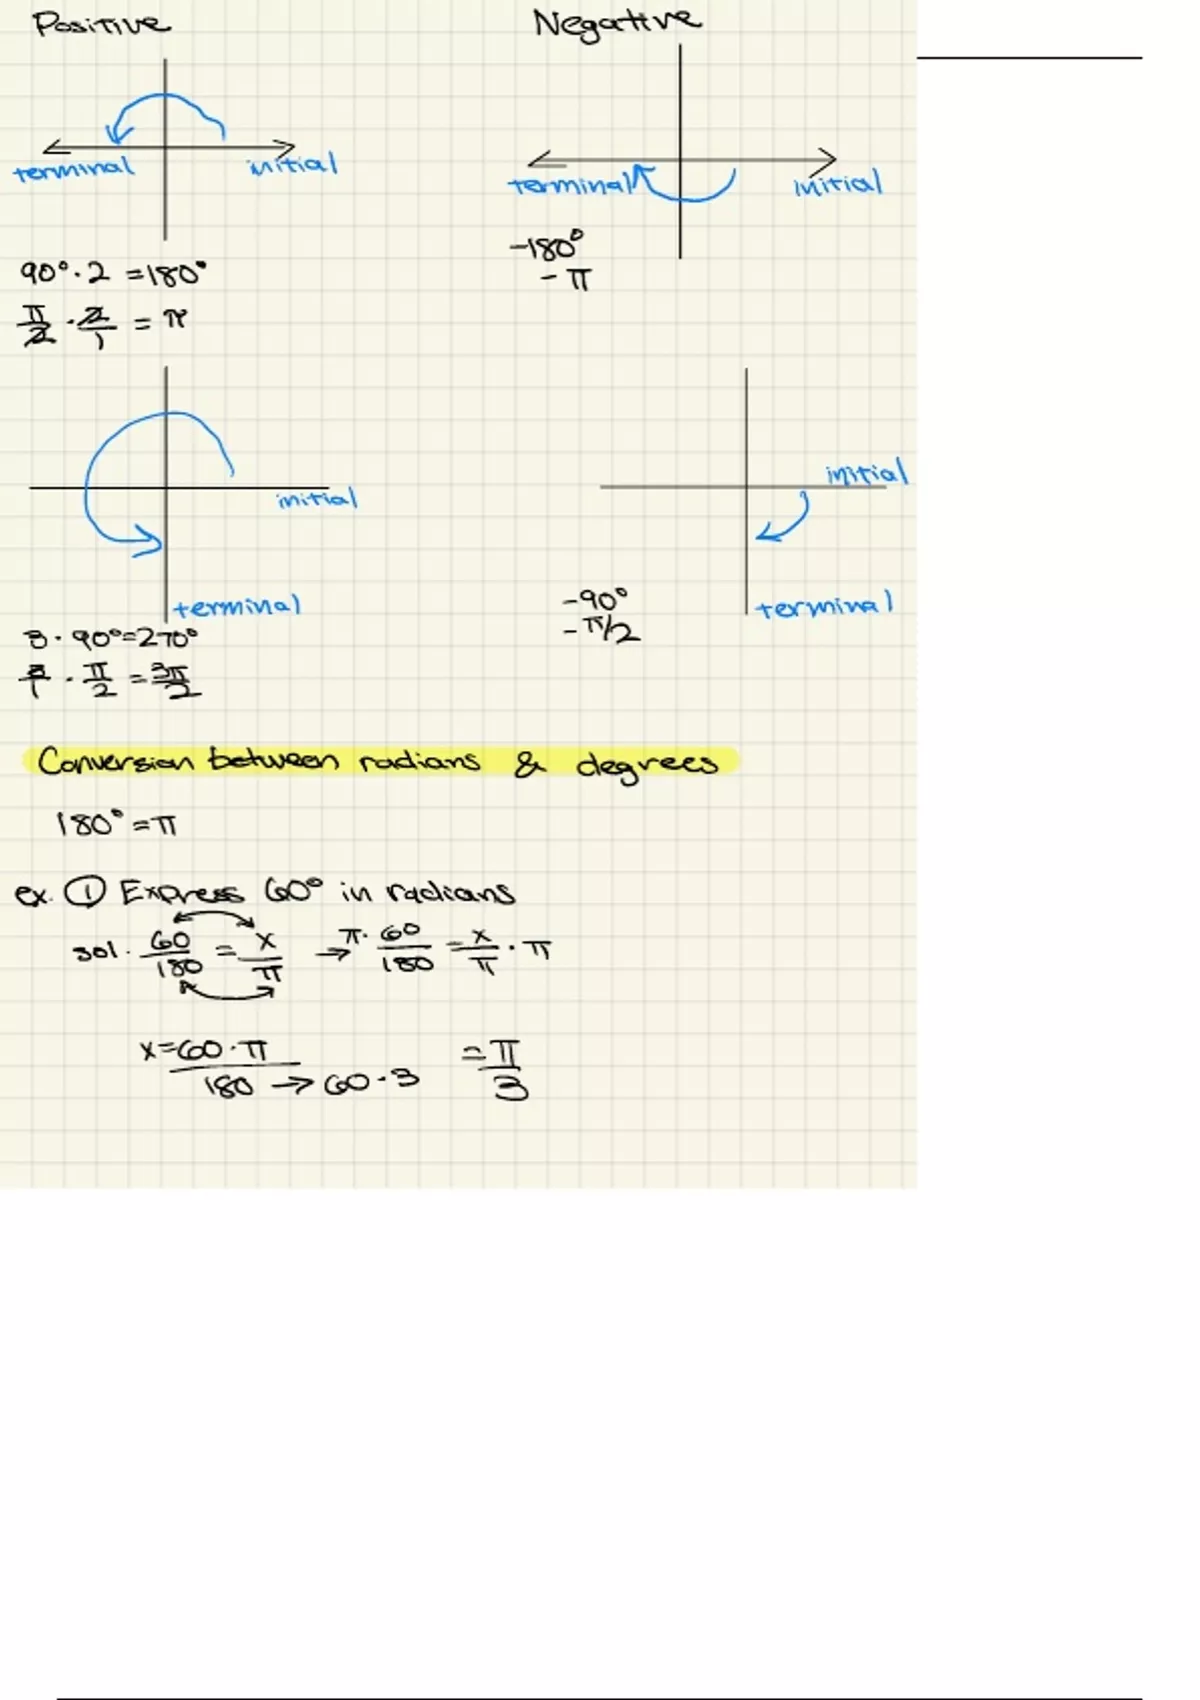 Positive
Negative
terminal
initial
terminal
initial
90° · 2 = 180°
π/2 · 2/1 = π
-180°
-π
initial
terminal
initial
terminal
3 · 90° = 270°
3/1 · π/2 = 3π/2
-90°
-π/2
Conversion between radians & degrees
180° = π
ex. ① Express 60° in radians
sol. 60/180 = x/π → π · 60/180 = x/π · π
x = 60 · π/180 → 60 · 3 = π/3